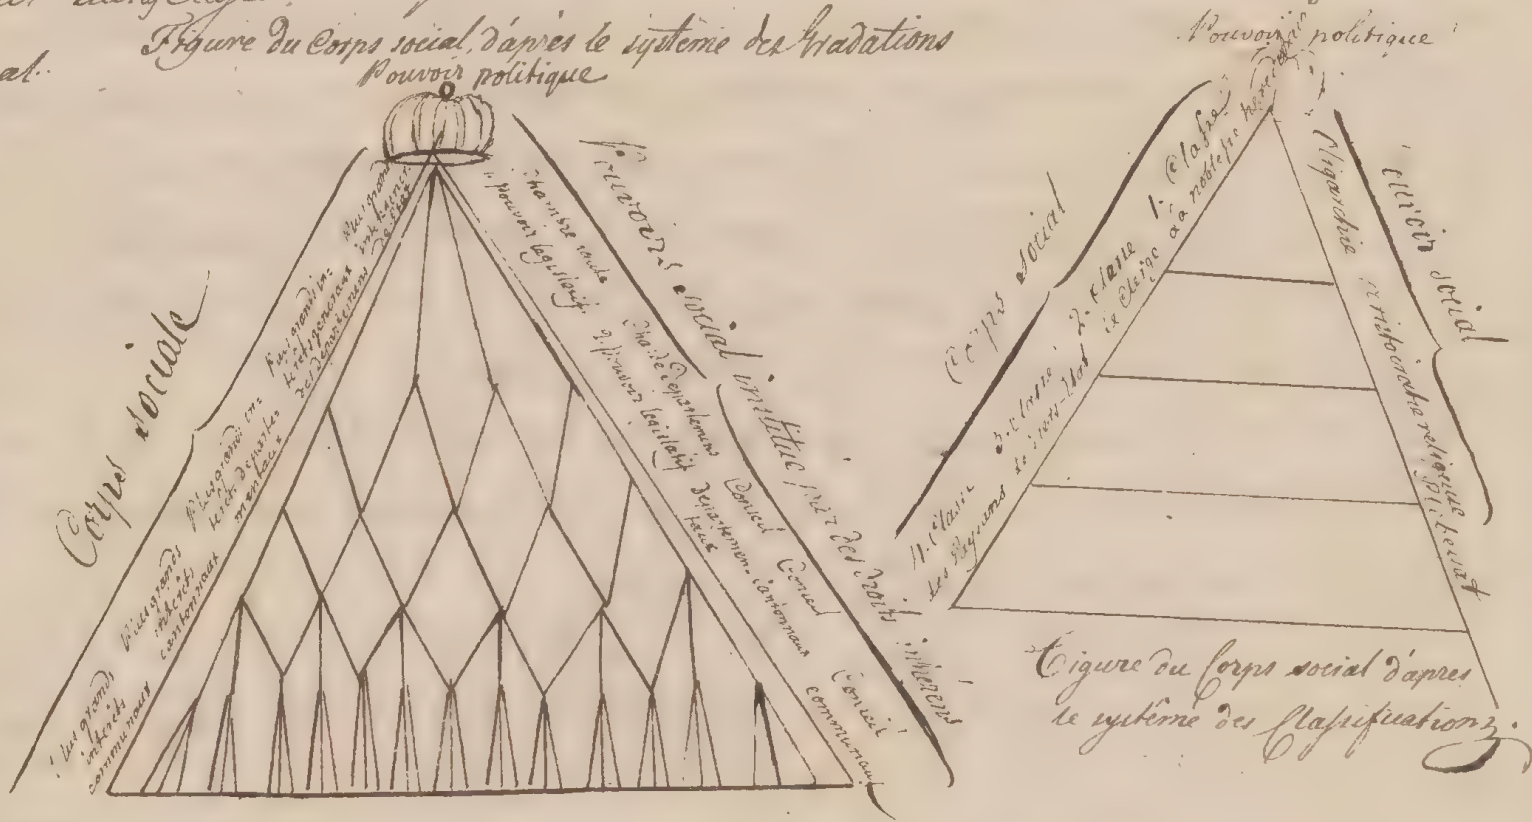 Figure du Corps social, d'après le système des Gradations
al.
Pouvoir politique
Corps sociale
Plus grands
intérêts
communaux
Plus grands
intérêts
cantonnaux
Plus grands in=
térêts départe
mentaux
Plus grands in=
térêts généraux
des départemens
Plus grands
intérêts
de l'état
Pouvoirs social institué par des droits inhérens
Chambre haute
1. Pouvoir législatif.
Ch. de Départemens
2. pouvoir législatif
Conseil
départemen-
taux
Conseil
cantonnaux
Conseil
communaux
Pouvoir politique
Corps social
1. Classe
la noblesse
2. Classe
le Clergé
3. Classe
le tiers-état
4. Classe
Les Paysans
Pouvoir social
Oligarchie aristocratie religieuse
Figure du Corps social d'après
le système des Classifications.